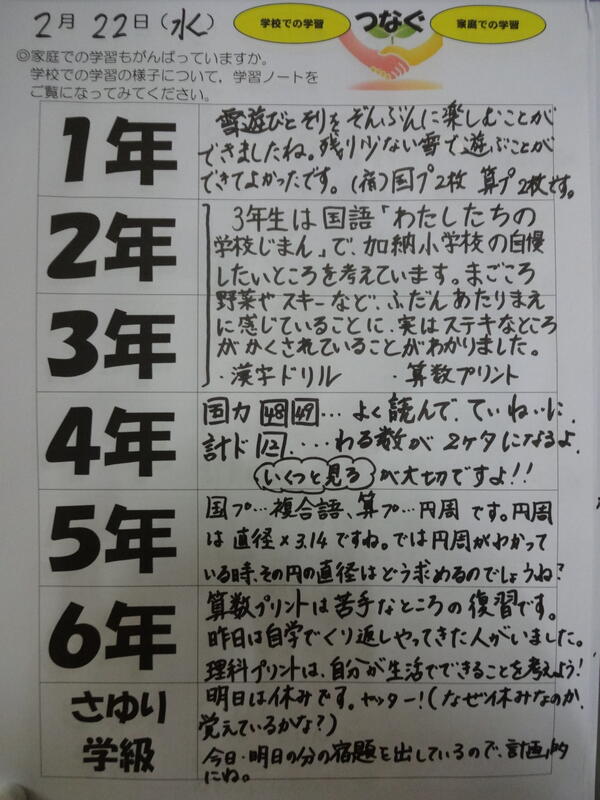 2月22日(水)
学校での学習 つなぐ 家庭での学習
◎家庭での学習もがんばっていますか。
学校での学習の様子について，学習ノートを
ご覧になってみてください。
1年
雪遊びとそりをぞんぶんに楽しむことが
できましたね。残り少ない雪で遊ぶことが
できてよかったです。(宿)国プ2枚 算プ2枚です。
2年
3年
3年生は国語「わたしたちの
学校じまん」で、加納小学校の自慢
したいところを考えています。まごころ
野菜やスキーなど、ふだんあたりまえ
に感じていることに、実はステキなところ
がかくされていることがわかりました。
・漢字ドリル ・算数プリント
4年
国力 48 49 … よく読んで、ていねいに、
計ド 12 ‥‥ わる数が2ケタになるよ、
いくつと見る が大切ですよ!!
5年
国プ…複合語、算プ…円周です。円周
は直径×3.14ですね。では円周がわかって
いる時、その円の直径はどう求めるのでしょうね?
6年
算数プリントは苦手なところの復習です。
昨日は自学でくり返しやってきた人がいました。
理科プリントは、自分が生活でできることを考えよう!
さゆり
学級
明日は休みです。ヤッター!(なぜ休みなのか、
覚えているかな?)
今日・明日の分の宿題を出しているので、計画的
にね。